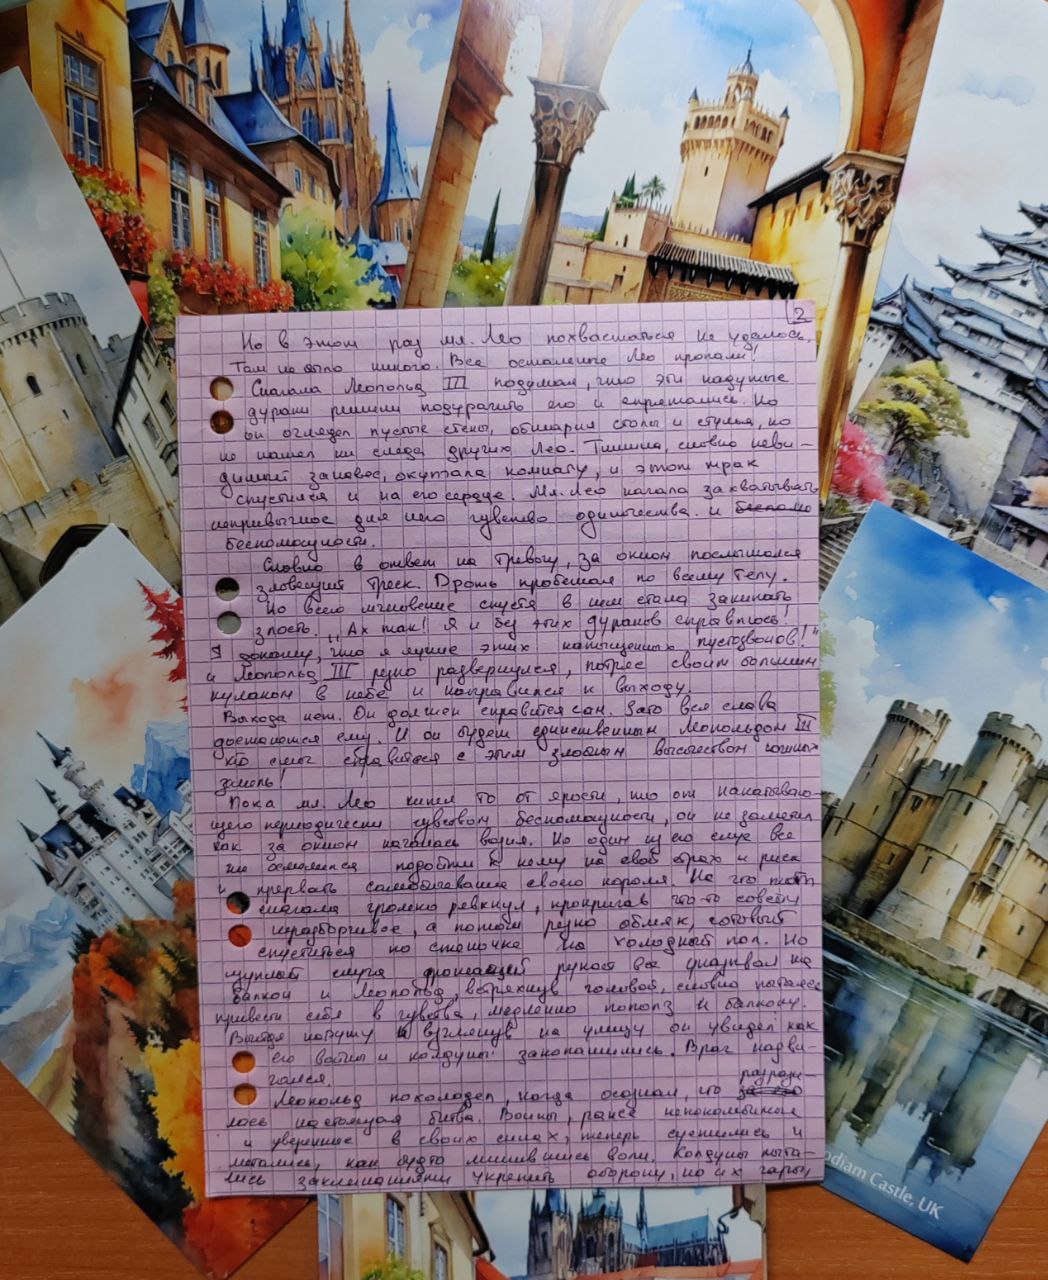 2
Но в этот раз мл. Лео похвастаться не удалось.
Там не было никого. Все остальные Лео пропали!
Сначала Леопольд III подумал, что эти надутые
дураки решили подурачить его и спрятались. Но
он оглядел пустые стены, обшарил столы и стулья, но
не нашел ни следа других Лео. Тишина, словно неви-
димый занавес, окутала комнату, и этот мрак
спустился и на его сердце. Мл. Лео начало захватывать
непривычное для него чувство одиночества и
беспомощности.
Словно в ответ на тревогу, за окном послышался
зловещий треск. Дрожь пробежала по всему телу.
Но всего мгновение спустя в нем стала закипать
злость. „Ах так! Я и без этих дураков справлюсь!
Я докажу, что я лучше этих напыщенных пустозвонов!"
и Леопольд III резко развернулся, потряс своим большим
кулаком в небо и направился к выходу.
Выхода нет. Он должен справится сам. Зато вся слава
достанется ему. И он будет единственным Леопольдом III
кто смог справиться с этим злобным высочеством
земель!
Пока мл. Лео кипел то от ярости, то от накатываю-
щего периодически чувством беспомощности, он не заметил
как за окном началась возня. Но один из его слуг все
же осмелился подойти к нему на свой страх и риск
и прервать своего короля. На что тот
сначала громко рявкнул, прокричав что-то совсем
неразборчивое, а потом резко обмяк, готовый
спуститься по стеночке на холодный пол. Но
слуга дрожащей рукой все указывал на
балкон и Леопольд, встряхнув головой, словно пытаясь
привести себя в чувства, медленно пополз к балкону.
Выйдя наружу и взглянув на улицу он увидел как
его воины и колдуны закопошились. Враг надви-
гался.
Леопольд похолодел, когда осознал, что разрази-
лась настоящая битва. Воины, ранее непоколебимые
и уверенные в своих силах, теперь суетились и
метались, как будто лишившись воли. Колдуны пыта-
лись заклинаниями укрепить оборону, но их чары,
odiam Castle, UK